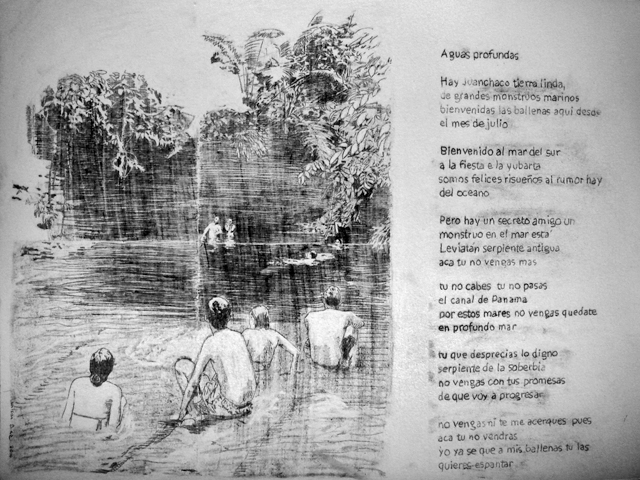 Aguas profundas
Hay Juanchaco tierra linda,
de grandes monstruos marinos
bienvenidas las ballenas aquí desde
el mes de julio
Bienvenido al mar del sur
a la fiesta e la yubarta
somos felices risueños al rumor hay
del oceano
Pero hay un secreto amigo un
monstruo en el mar esta
Leviatan serpiente antigua
aca tu no vengas mas
tu no cabes tu no pasas
el canal de Panama
por estos mares no vengas quedate
en profundo mar
tu que desprecias lo digno
serpiente de la soberbia
no vengas con tus promesas
de que voy a progresar
no vengas ni te me acerques pues
aca tu no vendras
yo ya se que a mis ballenas tu las
quieres espantar